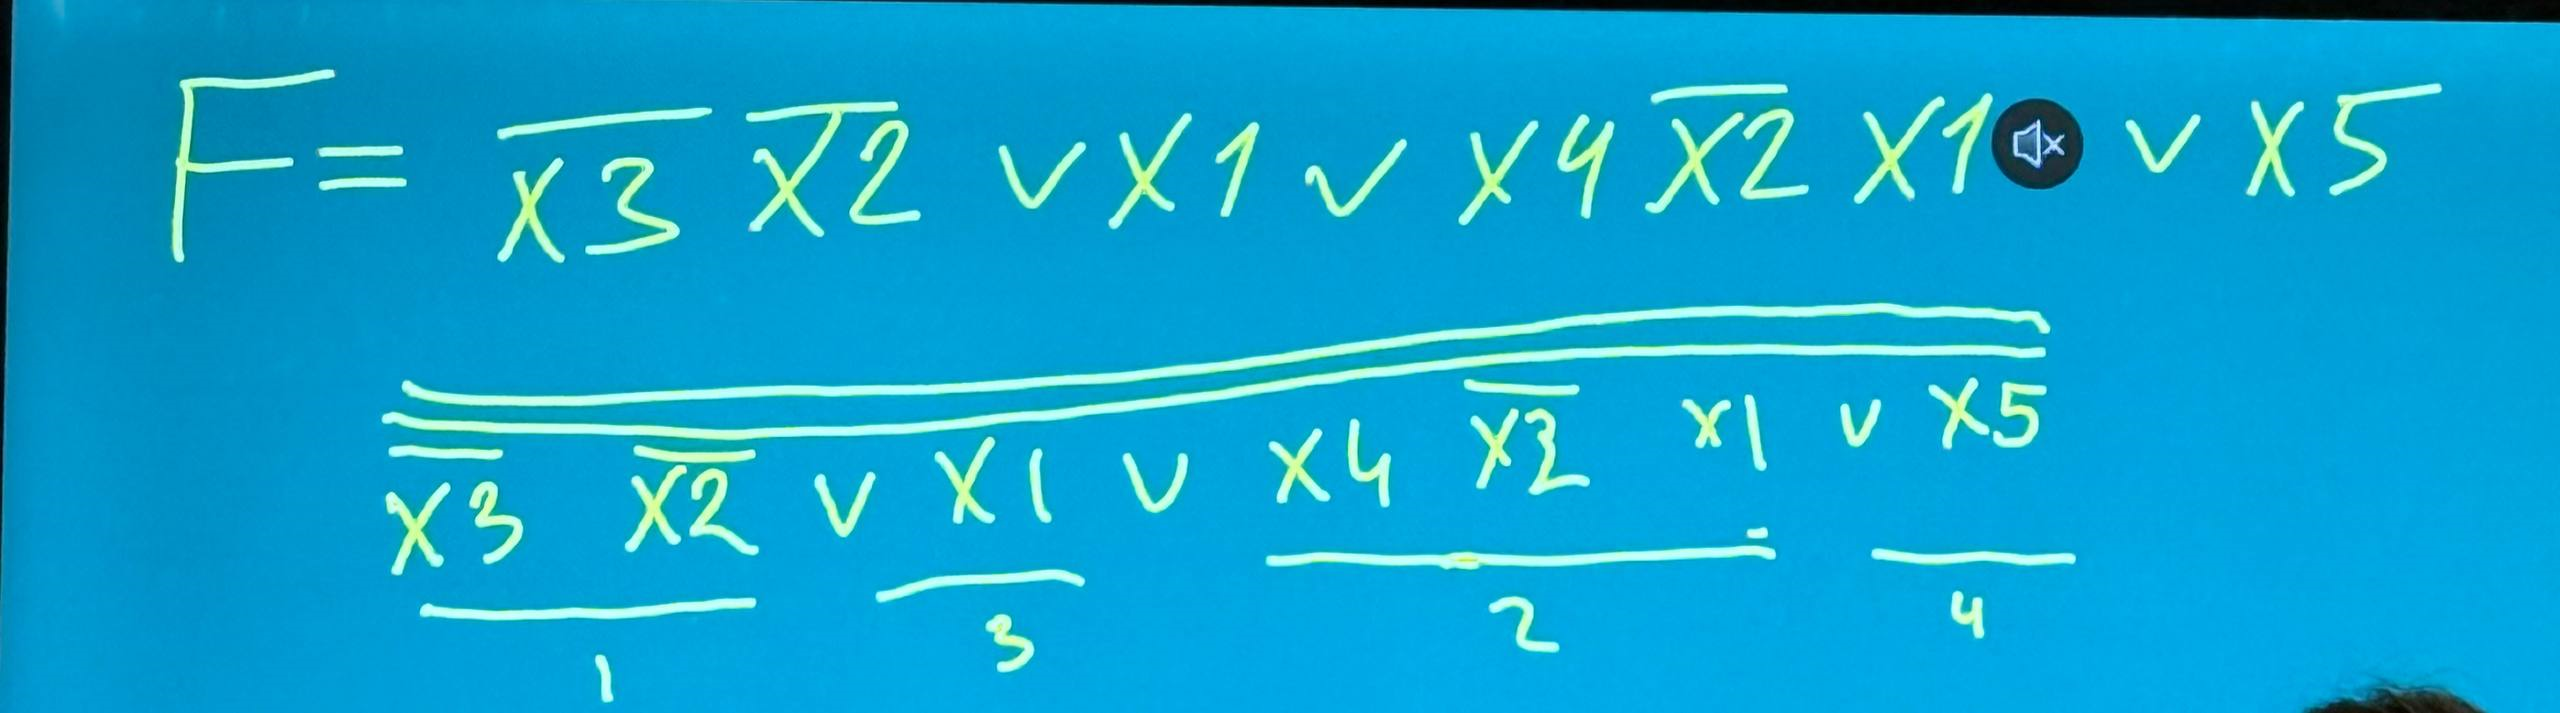 F= x̅3̅ x̅2̅ v x1 v x4 x̅2̅ x1 v x5
x̅3̅ x̅2̅ v x1 v x4 x̅2̅ x1 v x5
1 3 2 4